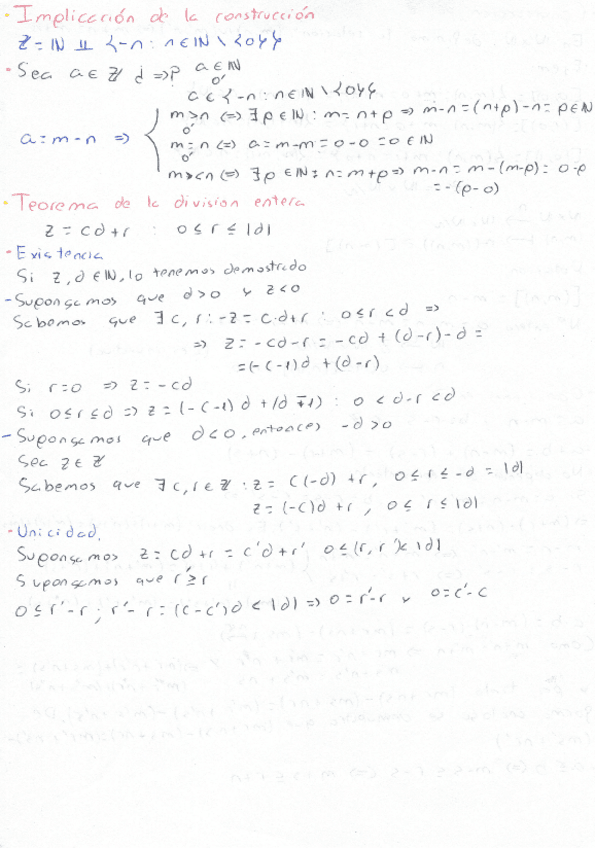 · Implicación de la construcción
Z = IN ⨿ {-n : n ∈ IN \ {0}}
- Sea a ∈ Z ¿ =>? a ∈ IN
o'
a ∈ {-n : n ∈ IN \ {0}}
m>n <=> ∃ p ∈ IN : m = n+p => m-n = (n+p)-n = p ∈ IN
o'
a = m-n => m=n <=> a = m-m = 0-0 = 0 ∈ IN
o'
m<n <=> ∃ p ∈ IN : n = m+p => m-n = m-(m-p) = 0-p
= -(p-0)
· Teorema de la division entera
z = cd+r : 0 ≤ r ≤ |d|
- Existencia
Si z, d ∈ IN, lo tenemos demostrado
- Supongamos que d>0 y z<0
Sabemos que ∃ c, r : -z = c·d+r : 0 ≤ r < d =>
=> z = -cd-r = -cd + (d-r)-d =
= (-c-1)d + (d-r)
Si r=0 => z = -cd
Si 0 ≤ r ≤ d => z = (-c-1)d + (d-r) : 0 < d-r < d
- Supongamos que d<0, entonces -d>0
Sea z ∈ Z
Sabemos que ∃ c, r ∈ Z : z = c(-d) + r, 0 ≤ r ≤ -d = |d|
z = (-c)d + r, 0 ≤ r ≤ |d|
- Unicidad.
Supongamos z = cd+r = c'd+r' 0 ≤ (r, r') < |d|
Supongamos que r' ≥ r
0 ≤ r'-r ; r'-r = (c-c')d < |d| => 0 = r'-r y 0 = c'-c